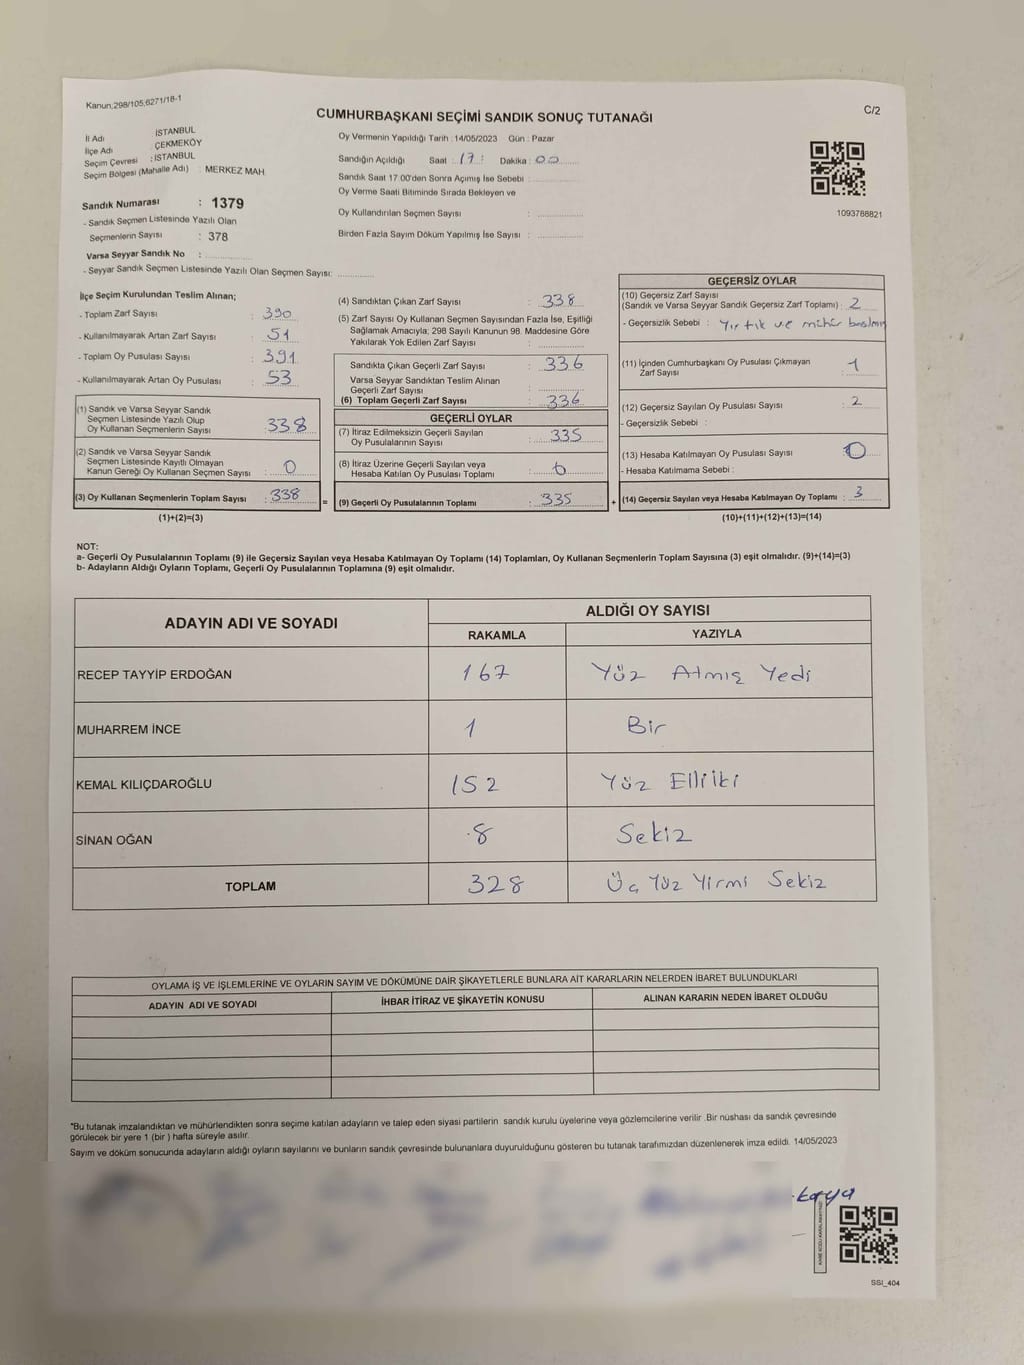 Kanun;298/105;6271/18-1
CUMHURBAŞKANI SEÇİMİ SANDIK SONUÇ TUTANAĞI
C/2
İl Adı : İSTANBUL
İlçe Adı : ÇEKMEKÖY
Seçim Çevresi : İSTANBUL
Seçim Bölgesi (Mahalle Adı) : MERKEZ MAH.
Sandık Numarası : 1379
- Sandık Seçmen Listesinde Yazılı Olan
Seçmenlerin Sayısı : 378
Varsa Seyyar Sandık No :
- Seyyar Sandık Seçmen Listesinde Yazılı Olan Seçmen Sayısı:
Oy Vermenin Yapıldığı Tarih : 14/05/2023 Gün : Pazar
Sandığın Açıldığı Saat : 17 : Dakika : 00
Sandık Saat 17:00'den Sonra Açımış İse Sebebi :
Oy Verme Saati Bitiminde Sırada Bekleyen ve
Oy Kullandırılan Seçmen Sayısı :
Birden Fazla Sayım Döküm Yapılmış İse Sayısı :
1093788821
İlçe Seçim Kurulundan Teslim Alınan;
- Toplam Zarf Sayısı : 390
- Kullanılmayarak Artan Zarf Sayısı : 51
- Toplam Oy Pusulası Sayısı : 391
- Kullanılmayarak Artan Oy Pusulası : 53
(1) Sandık ve Varsa Seyyar Sandık
Seçmen Listesinde Yazılı Olup
Oy Kullanan Seçmenlerin Sayısı : 338
(2) Sandık ve Varsa Seyyar Sandık
Seçmen Listesinde Kayıtlı Olmayan
Kanun Gereği Oy Kullanan Seçmen Sayısı : 0
(3) Oy Kullanan Seçmenlerin Toplam Sayısı : 338
(1)+(2)=(3)
(4) Sandıktan Çıkan Zarf Sayısı : 338
(5) Zarf Sayısı Oy Kullanan Seçmen Sayısından Fazla İse, Eşitliği
Sağlamak Amacıyla; 298 Sayılı Kanunun 98. Maddesine Göre
Yakılarak Yok Edilen Zarf Sayısı :
Sandıkta Çıkan Geçerli Zarf Sayısı : 336
Varsa Seyyar Sandıktan Teslim Alınan
Geçerli Zarf Sayısı :
(6) Toplam Geçerli Zarf Sayısı : 336
GEÇERLİ OYLAR
(7) İtiraz Edilmeksizin Geçerli Sayılan
Oy Pusulalarının Sayısı : 335
(8) İtiraz Üzerine Geçerli Sayılan veya
Hesaba Katılan Oy Pusulası Toplamı : 0
= (9) Geçerli Oy Pusulalarının Toplamı : 335 +
GEÇERSİZ OYLAR
(10) Geçersiz Zarf Sayısı
(Sandık ve Varsa Seyyar Sandık Geçersiz Zarf Toplamı) : 2
- Geçersizlik Sebebi : Yırtık ve mühür basılmış
(11) İçinden Cumhurbaşkanı Oy Pusulası Çıkmayan
Zarf Sayısı : 1
(12) Geçersiz Sayılan Oy Pusulası Sayısı : 2
- Geçersizlik Sebebi :
(13) Hesaba Katılmayan Oy Pusulası Sayısı : 0
- Hesaba Katılmama Sebebi :
(14) Geçersiz Sayılan veya Hesaba Katılmayan Oy Toplamı : 3
(10)+(11)+(12)+(13)=(14)
NOT:
a- Geçerli Oy Pusulalarının Toplamı (9) ile Geçersiz Sayılan veya Hesaba Katılmayan Oy Toplamı (14) Toplamları, Oy Kullanan Seçmenlerin Toplam Sayısına (3) eşit olmalıdır. (9)+(14)=(3)
b- Adayların Aldığı Oyların Toplamı, Geçerli Oy Pusulalarının Toplamına (9) eşit olmalıdır.
ADAYIN ADI VE SOYADI ALDIĞI OY SAYISI
RAKAMLA YAZIYLA
RECEP TAYYİP ERDOĞAN 167 Yüz Atmış Yedi
MUHARREM İNCE 1 Bir
KEMAL KILIÇDAROĞLU 152 Yüz Elli iki
SİNAN OĞAN 8 Sekiz
TOPLAM 328 Üç Yüz Yirmi Sekiz
OYLAMA İŞ VE İŞLEMLERİNE VE OYLARIN SAYIM VE DÖKÜMÜNE DAİR ŞİKAYETLERLE BUNLARA AİT KARARLARIN NELERDEN İBARET BULUNDUKLARI
ADAYIN ADI VE SOYADI İHBAR İTİRAZ VE ŞİKAYETİN KONUSU ALINAN KARARIN NEDEN İBARET OLDUĞU
*Bu tutanak imzalandıktan ve mühürlendikten sonra seçime katılan adayların ve talep eden siyasi partilerin sandık kurulu üyelerine veya gözlemcilerine verilir .Bir nüshası da sandık çevresinde
görülecek bir yere 1 (bir ) hafta süreyle asılır.
Sayım ve döküm sonucunda adayların aldığı oyların sayılarını ve bunların sandık çevresinde bulunanlara duyurulduğunu gösteren bu tutanak tarafımızdan düzenlenerek imza edildi. 14/05/2023
kaya
KARE KODU KARALAMAYINIZ!
SSI_404